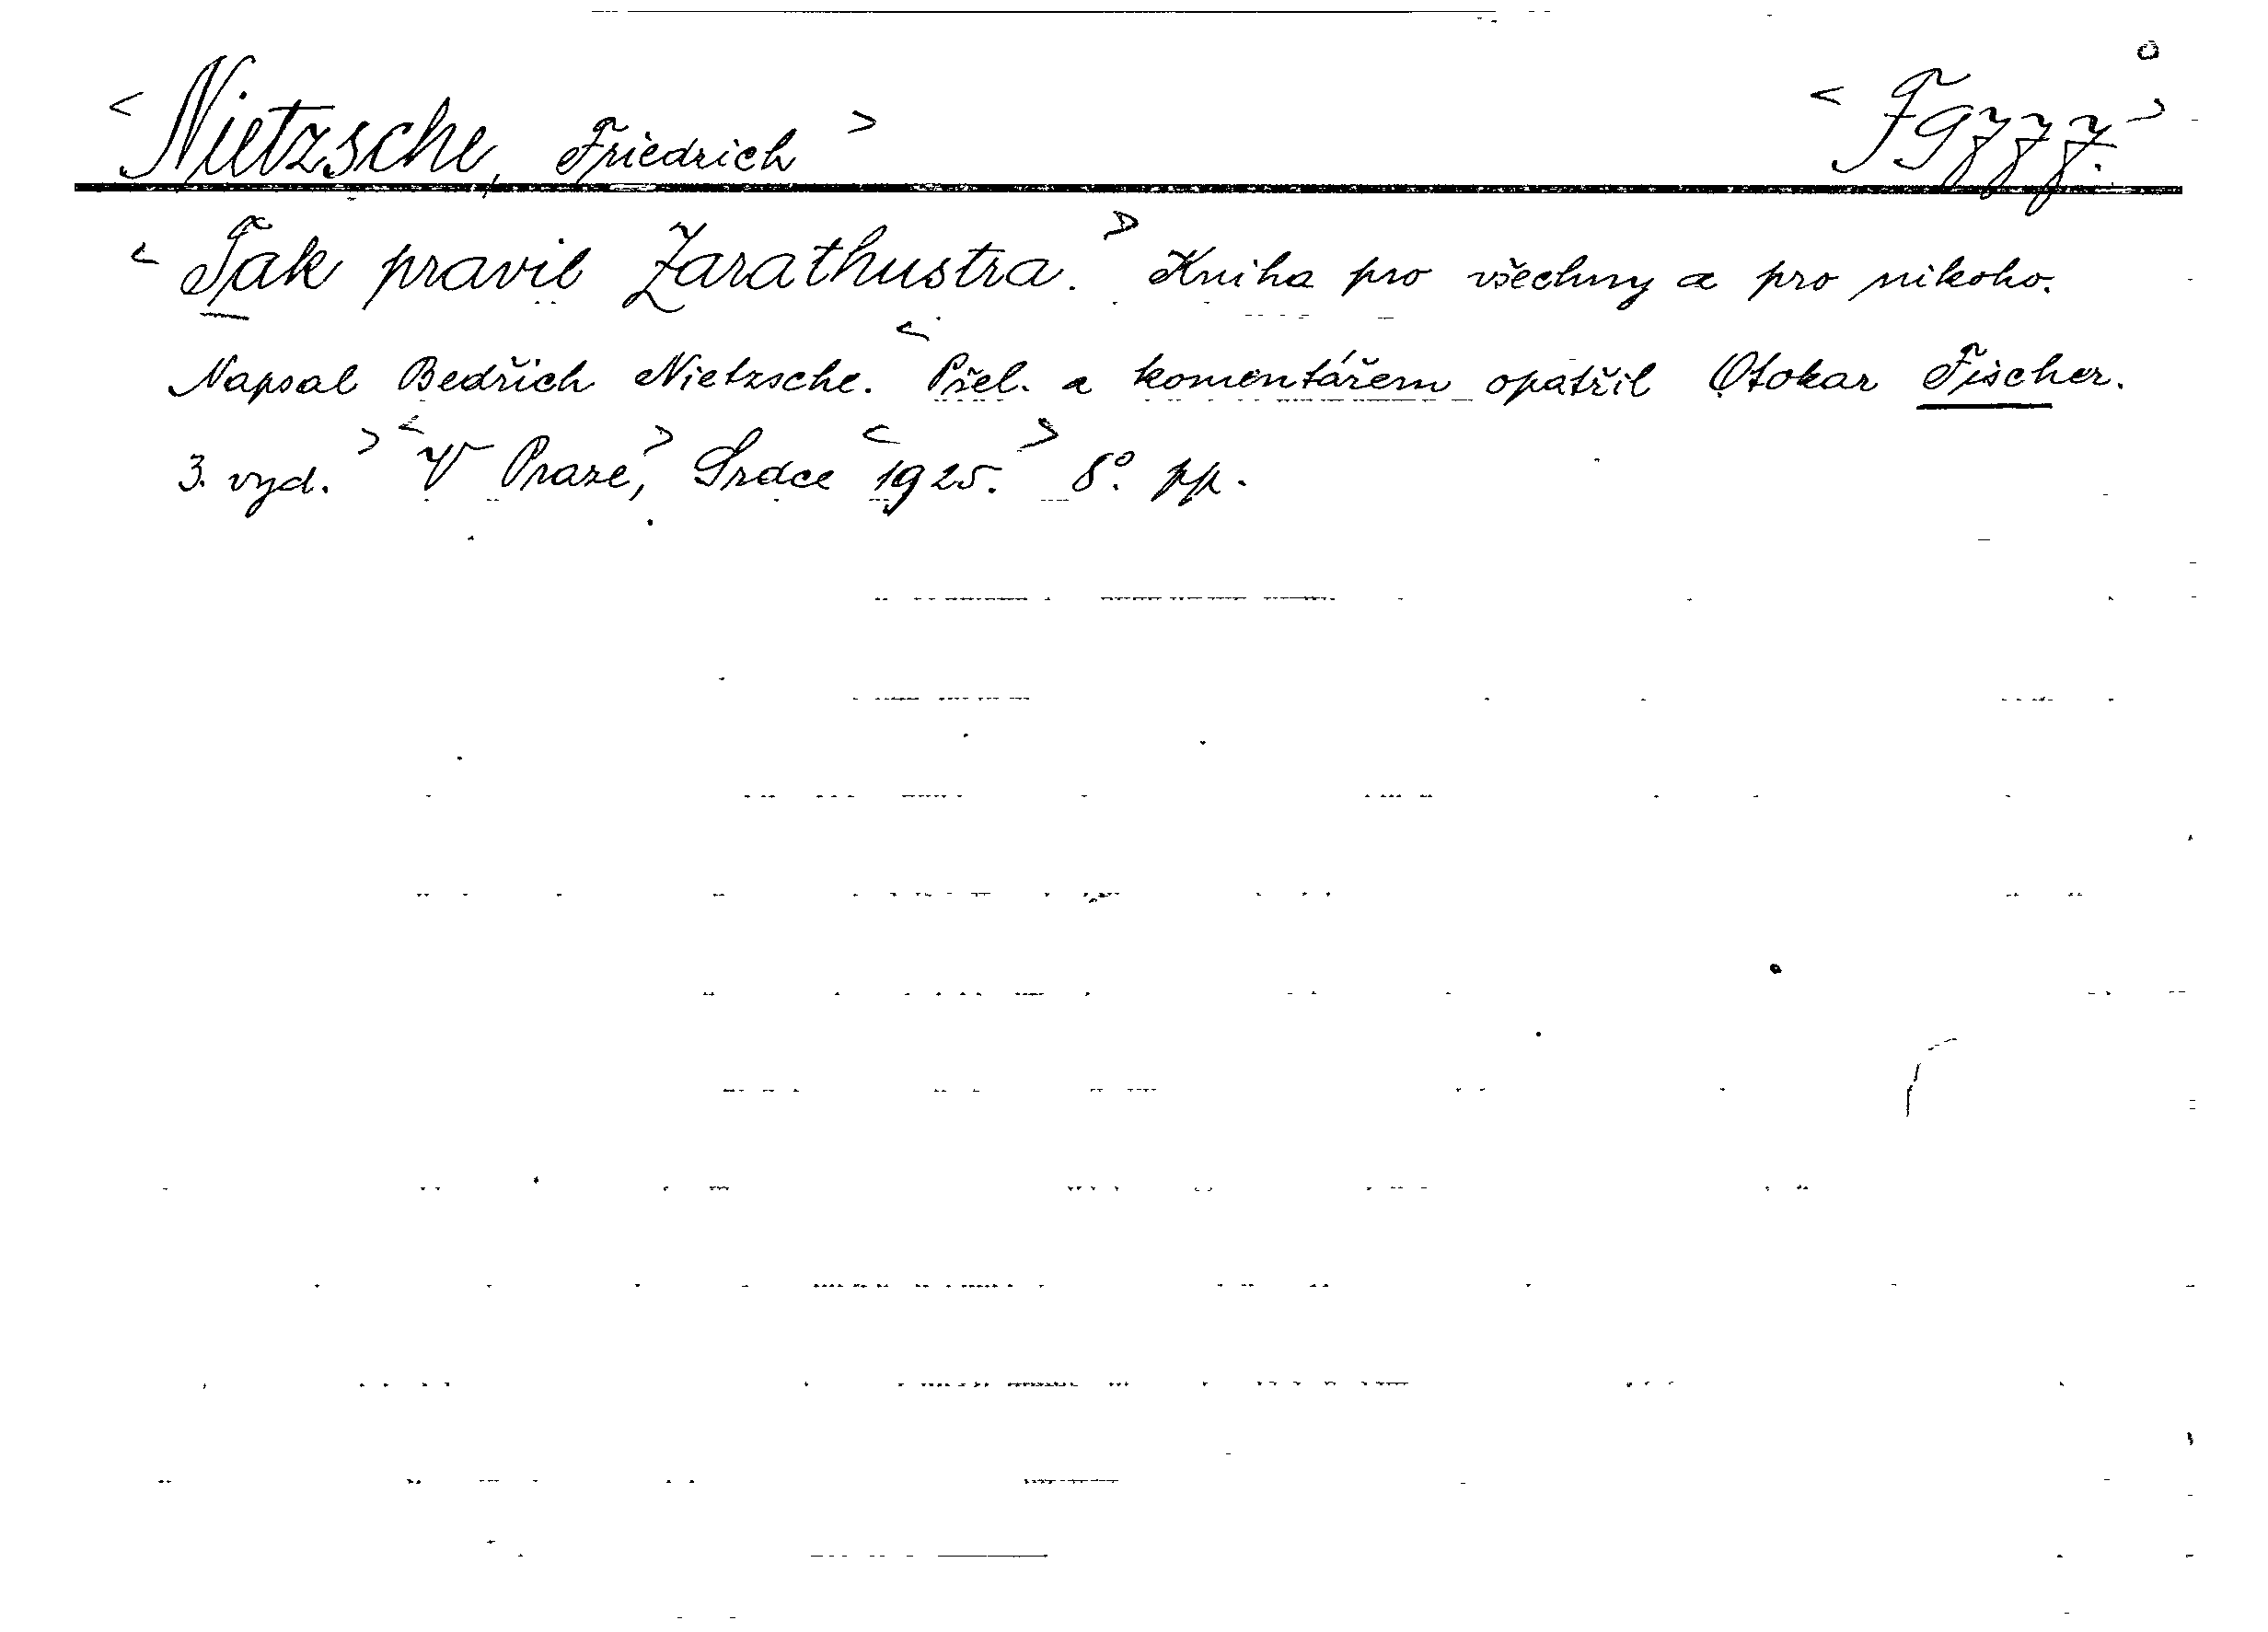 < Nietzsche, Friedrich > < F9777. >
< Tak pravil Zarathustra. > Kniha pro všechny a pro nikoho.
Napsal Bedřich Nietzsche. < Přel. a komentářem opatřil Otokar Fischer.
3. vyd. > < V Praze, > Srdce < 1925. > 8°. pp.